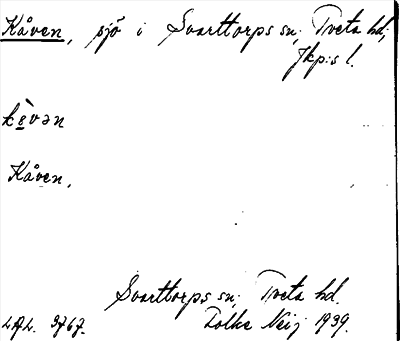 Kåven, sjö i Svarttorps sn; Tveta hd;
Jkp:s l.
kå̀vən
Kåven,
Svarttorps sn; Tveta hd.
LAL. 3767. Folke Neij 1939.